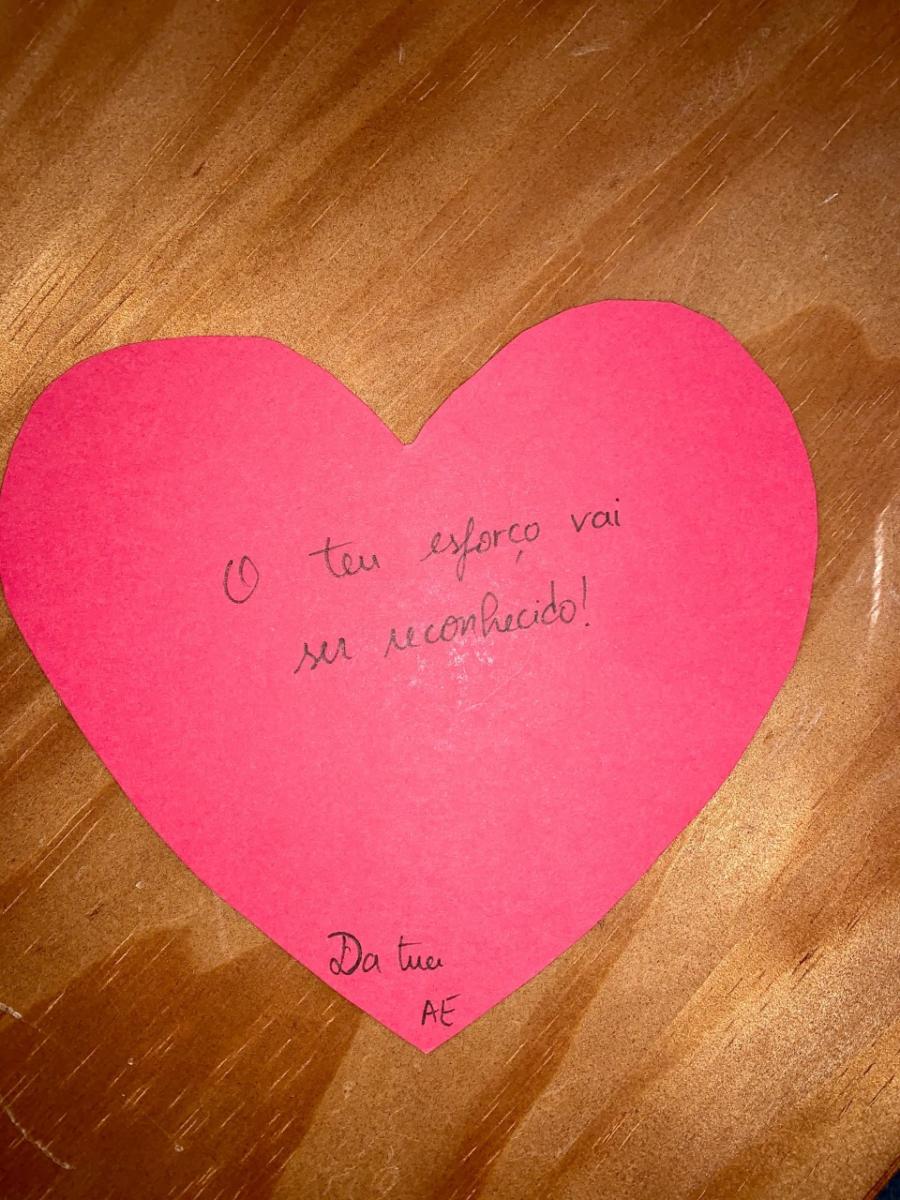 O teu esforço vai
ser reconhecido!
Da tua
AE